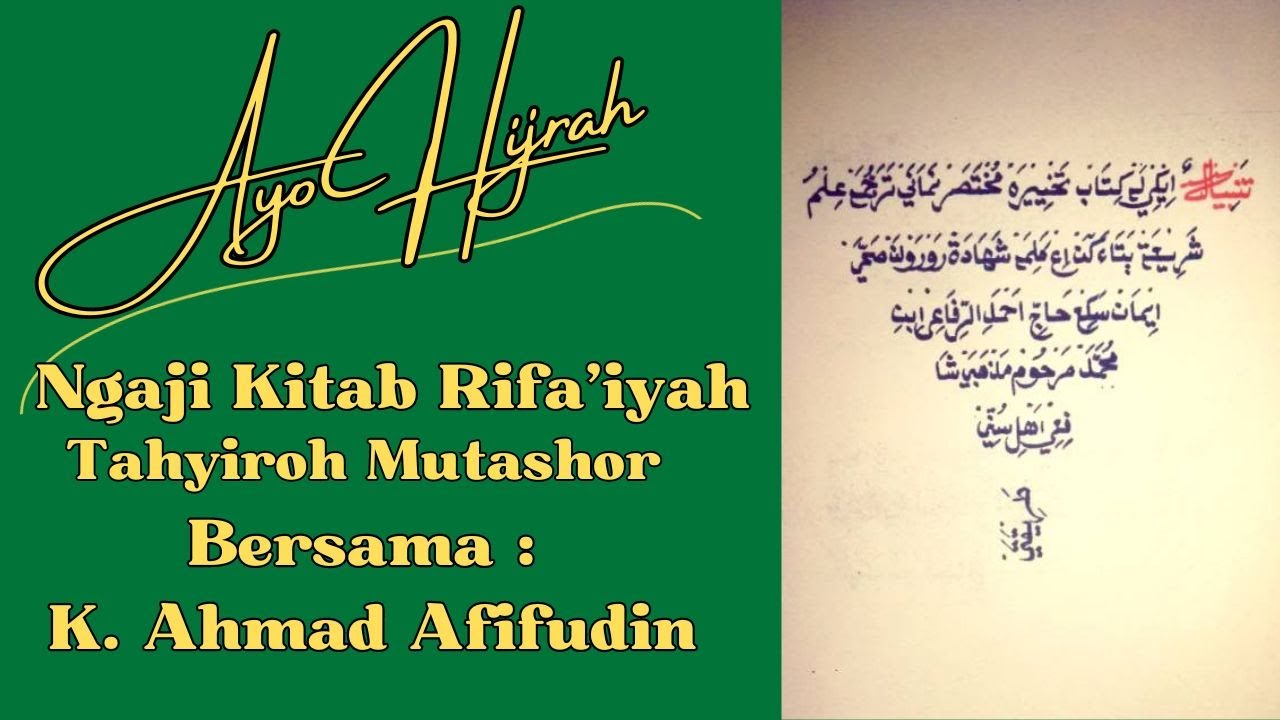 Ayo Hijrah
Ngaji Kitab Rifa'iyah
Tahyiroh Mutashor
Bersama :
K. Ahmad Afifudin
تَنْبِيْهٌ اِيْكِيْ كِتَابْ تَخْيِيْرَةْ مُخْتَصَرْ نَمَانَيْ تَرْجَمَةْ عِلْمُ
شَرِيْعَةْ پَتَاءَكَنْ اِڠْ كَلِمَةْ شَهَادَةْ رَوْرَوْ لَنْ صَحَّيْ
اِيْمَانْ سَكِڠْ حَاجِّ اَحْمَدْ الرِّفَاعِيْ اِبْنِ
مُحَمَّدْ مَرْحُوْمْ مَذْهَبَيْ شَا
فِعِيْ اَهْلِ سُنِّيْ
طَرِيْقَتَيْ